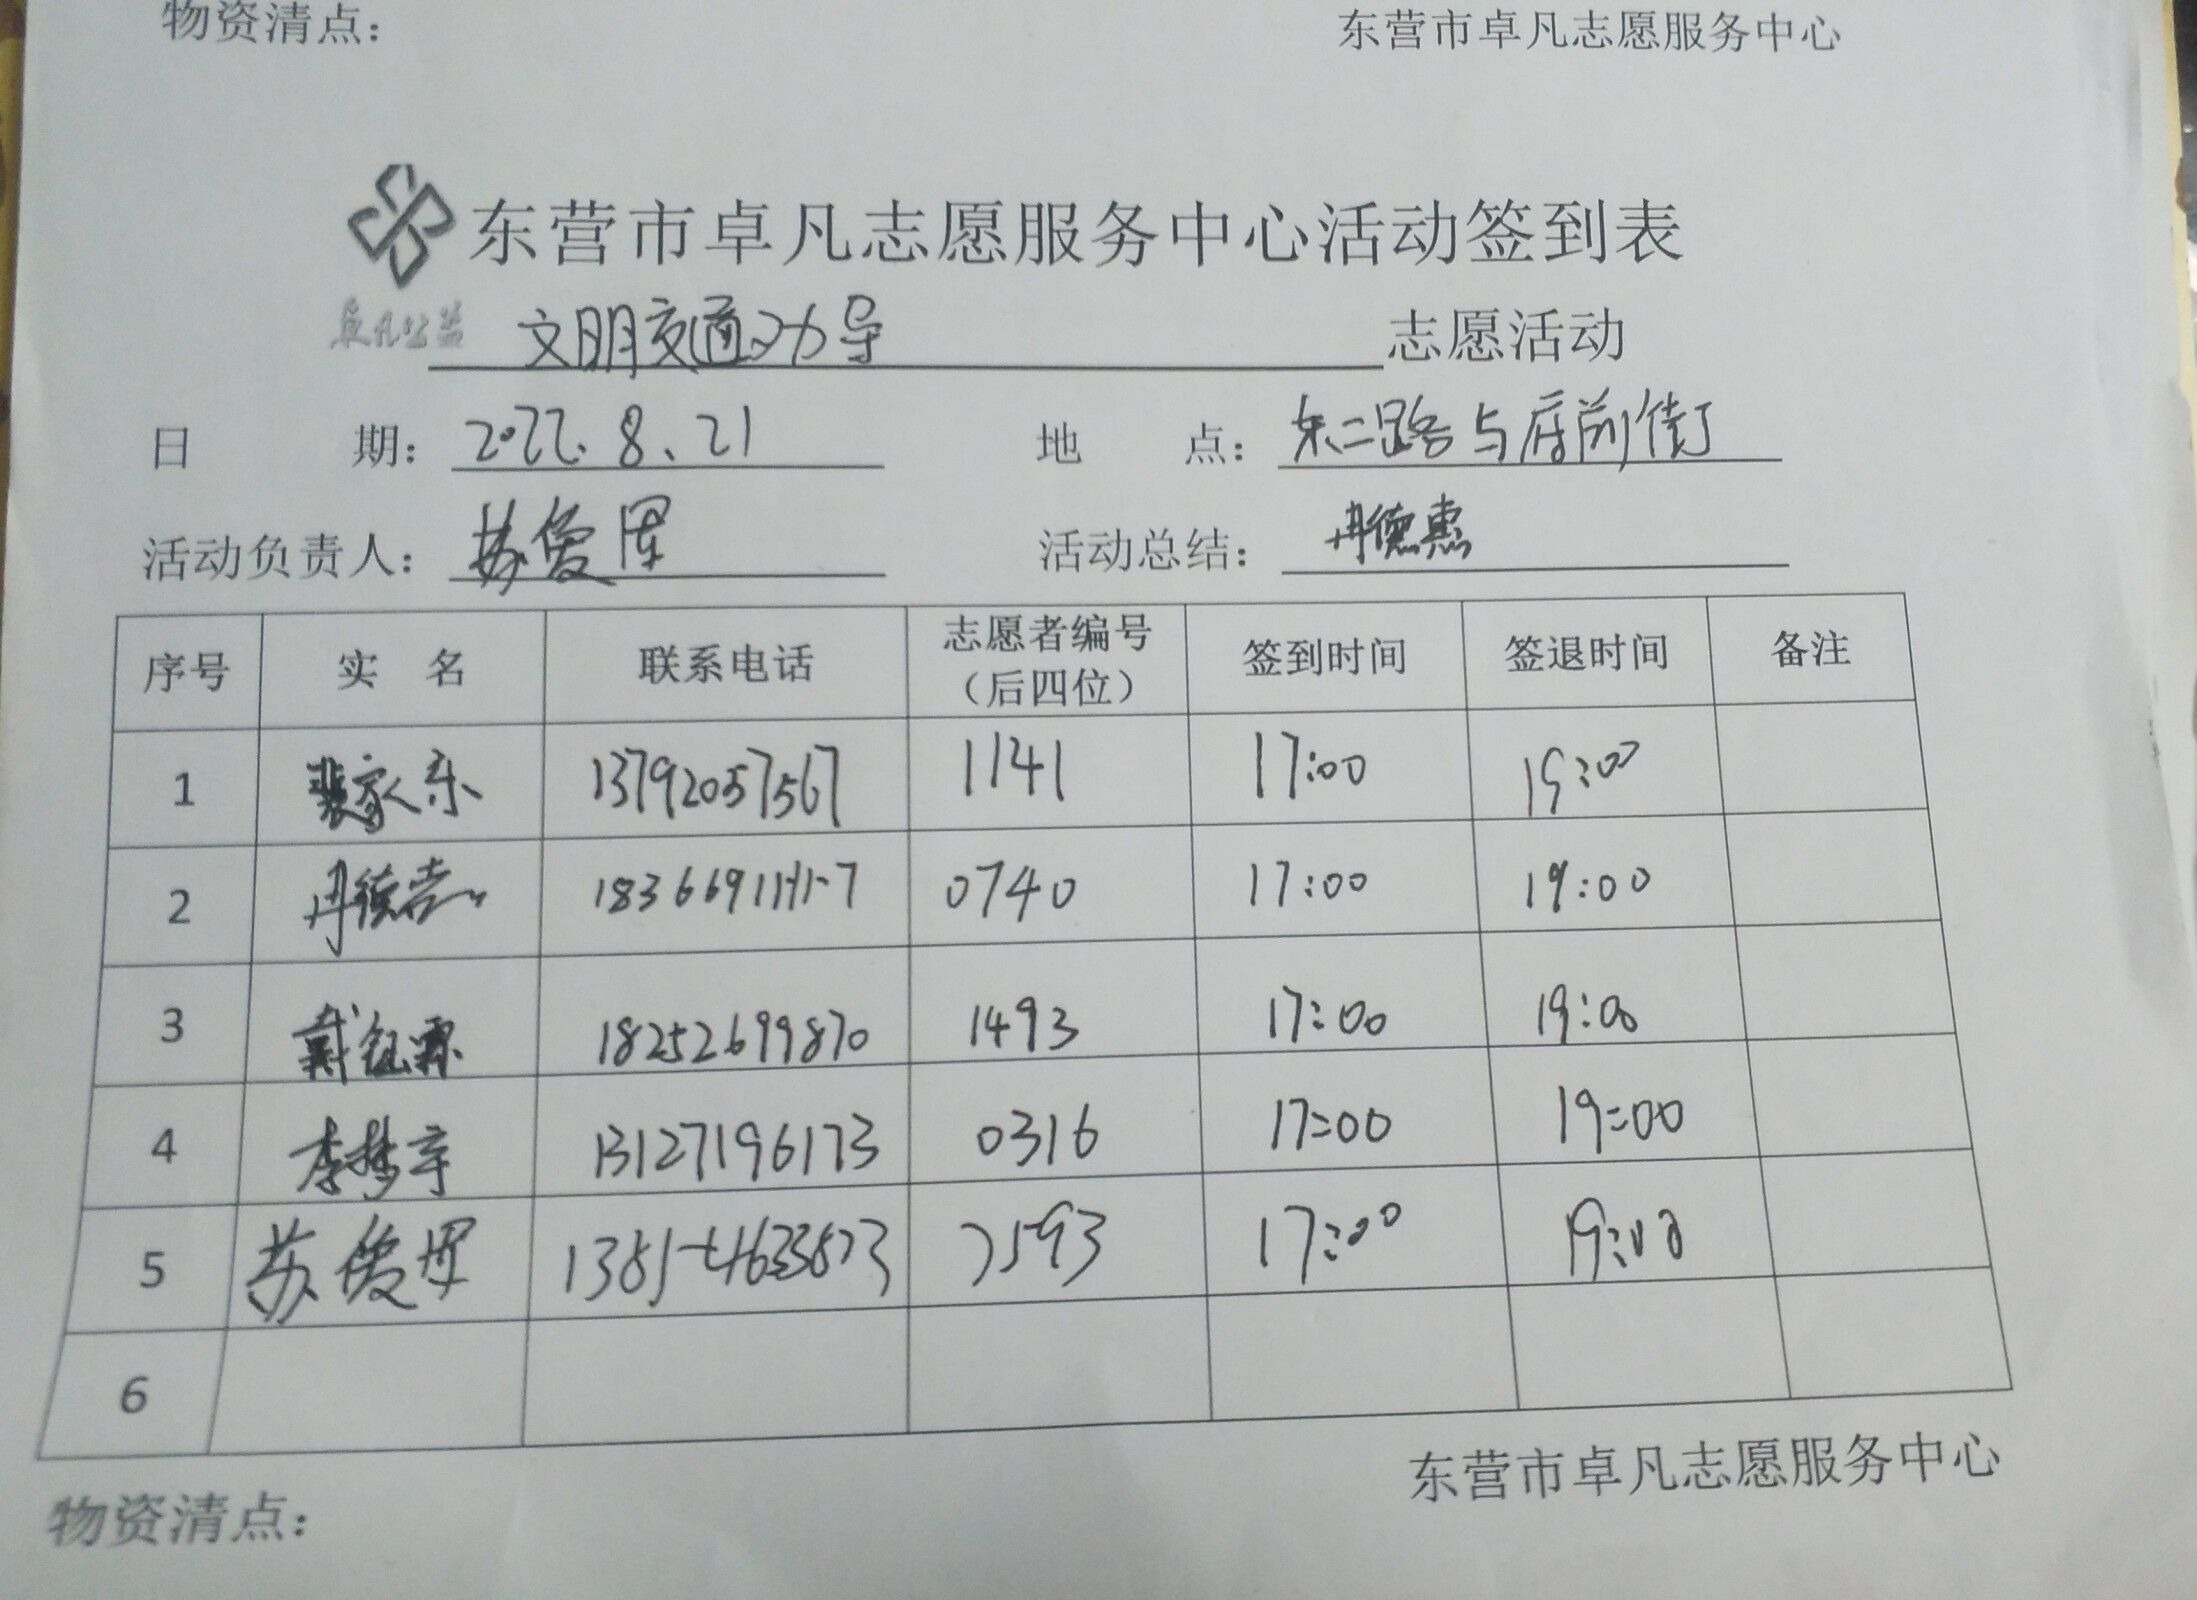 物资清点：
东营市卓凡志愿服务中心
东营市卓凡志愿服务中心活动签到表
卓凡公益
文明交通劝导 志愿活动
日 期：2022.8.21 地 点：东二路与府前街
活动负责人：苏俊 活动总结：冉德惠
序号 实 名 联系电话 志愿者编号（后四位） 签到时间 签退时间 备注
1 裴家乐 13792057567 1141 17:00 19:00
2 冉德 0740 17:00 19:00
3 戴钲霖 18252699870 1493 17:00 19:00
4 李梦宇 13127196173 0316 17:00 19:00
5 苏俊 17:00 19:00
6
物资清点：
东营市卓凡志愿服务中心